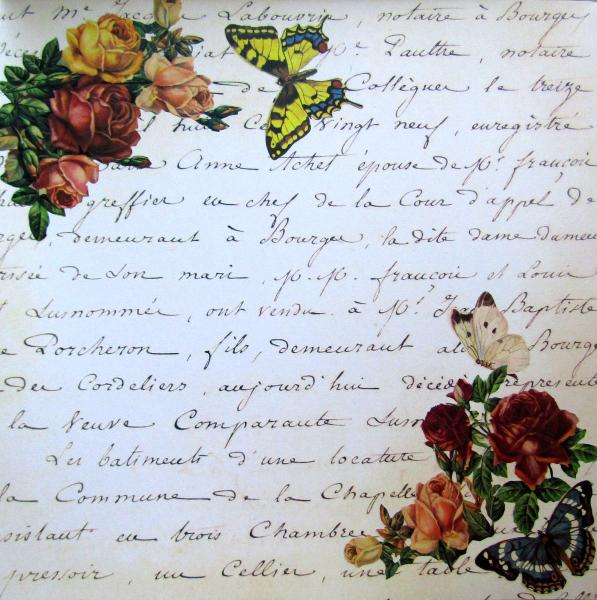 Labouvrie, notaire à Bourges
Pauttre, notaire
de Collègues le treize
vingt neuf, enregistré
Anne Achet épouse de Mr. françois
greffier en chef de la Cour d'appel de
demeurant à Bourges, la dite dame dument
de Son mari, M.M. françois et Louis
Susnommés, ont vendu à Mr. Baptiste
Porcheron, fils, demeurant Bourges
des Cordeliers, aujourd'hui décédé représenté
la Veuve Comparante Susn
Les batiments d'une locature
la Commune de la Chapelle
en trois Chambres
pressoir, un Cellier, une table